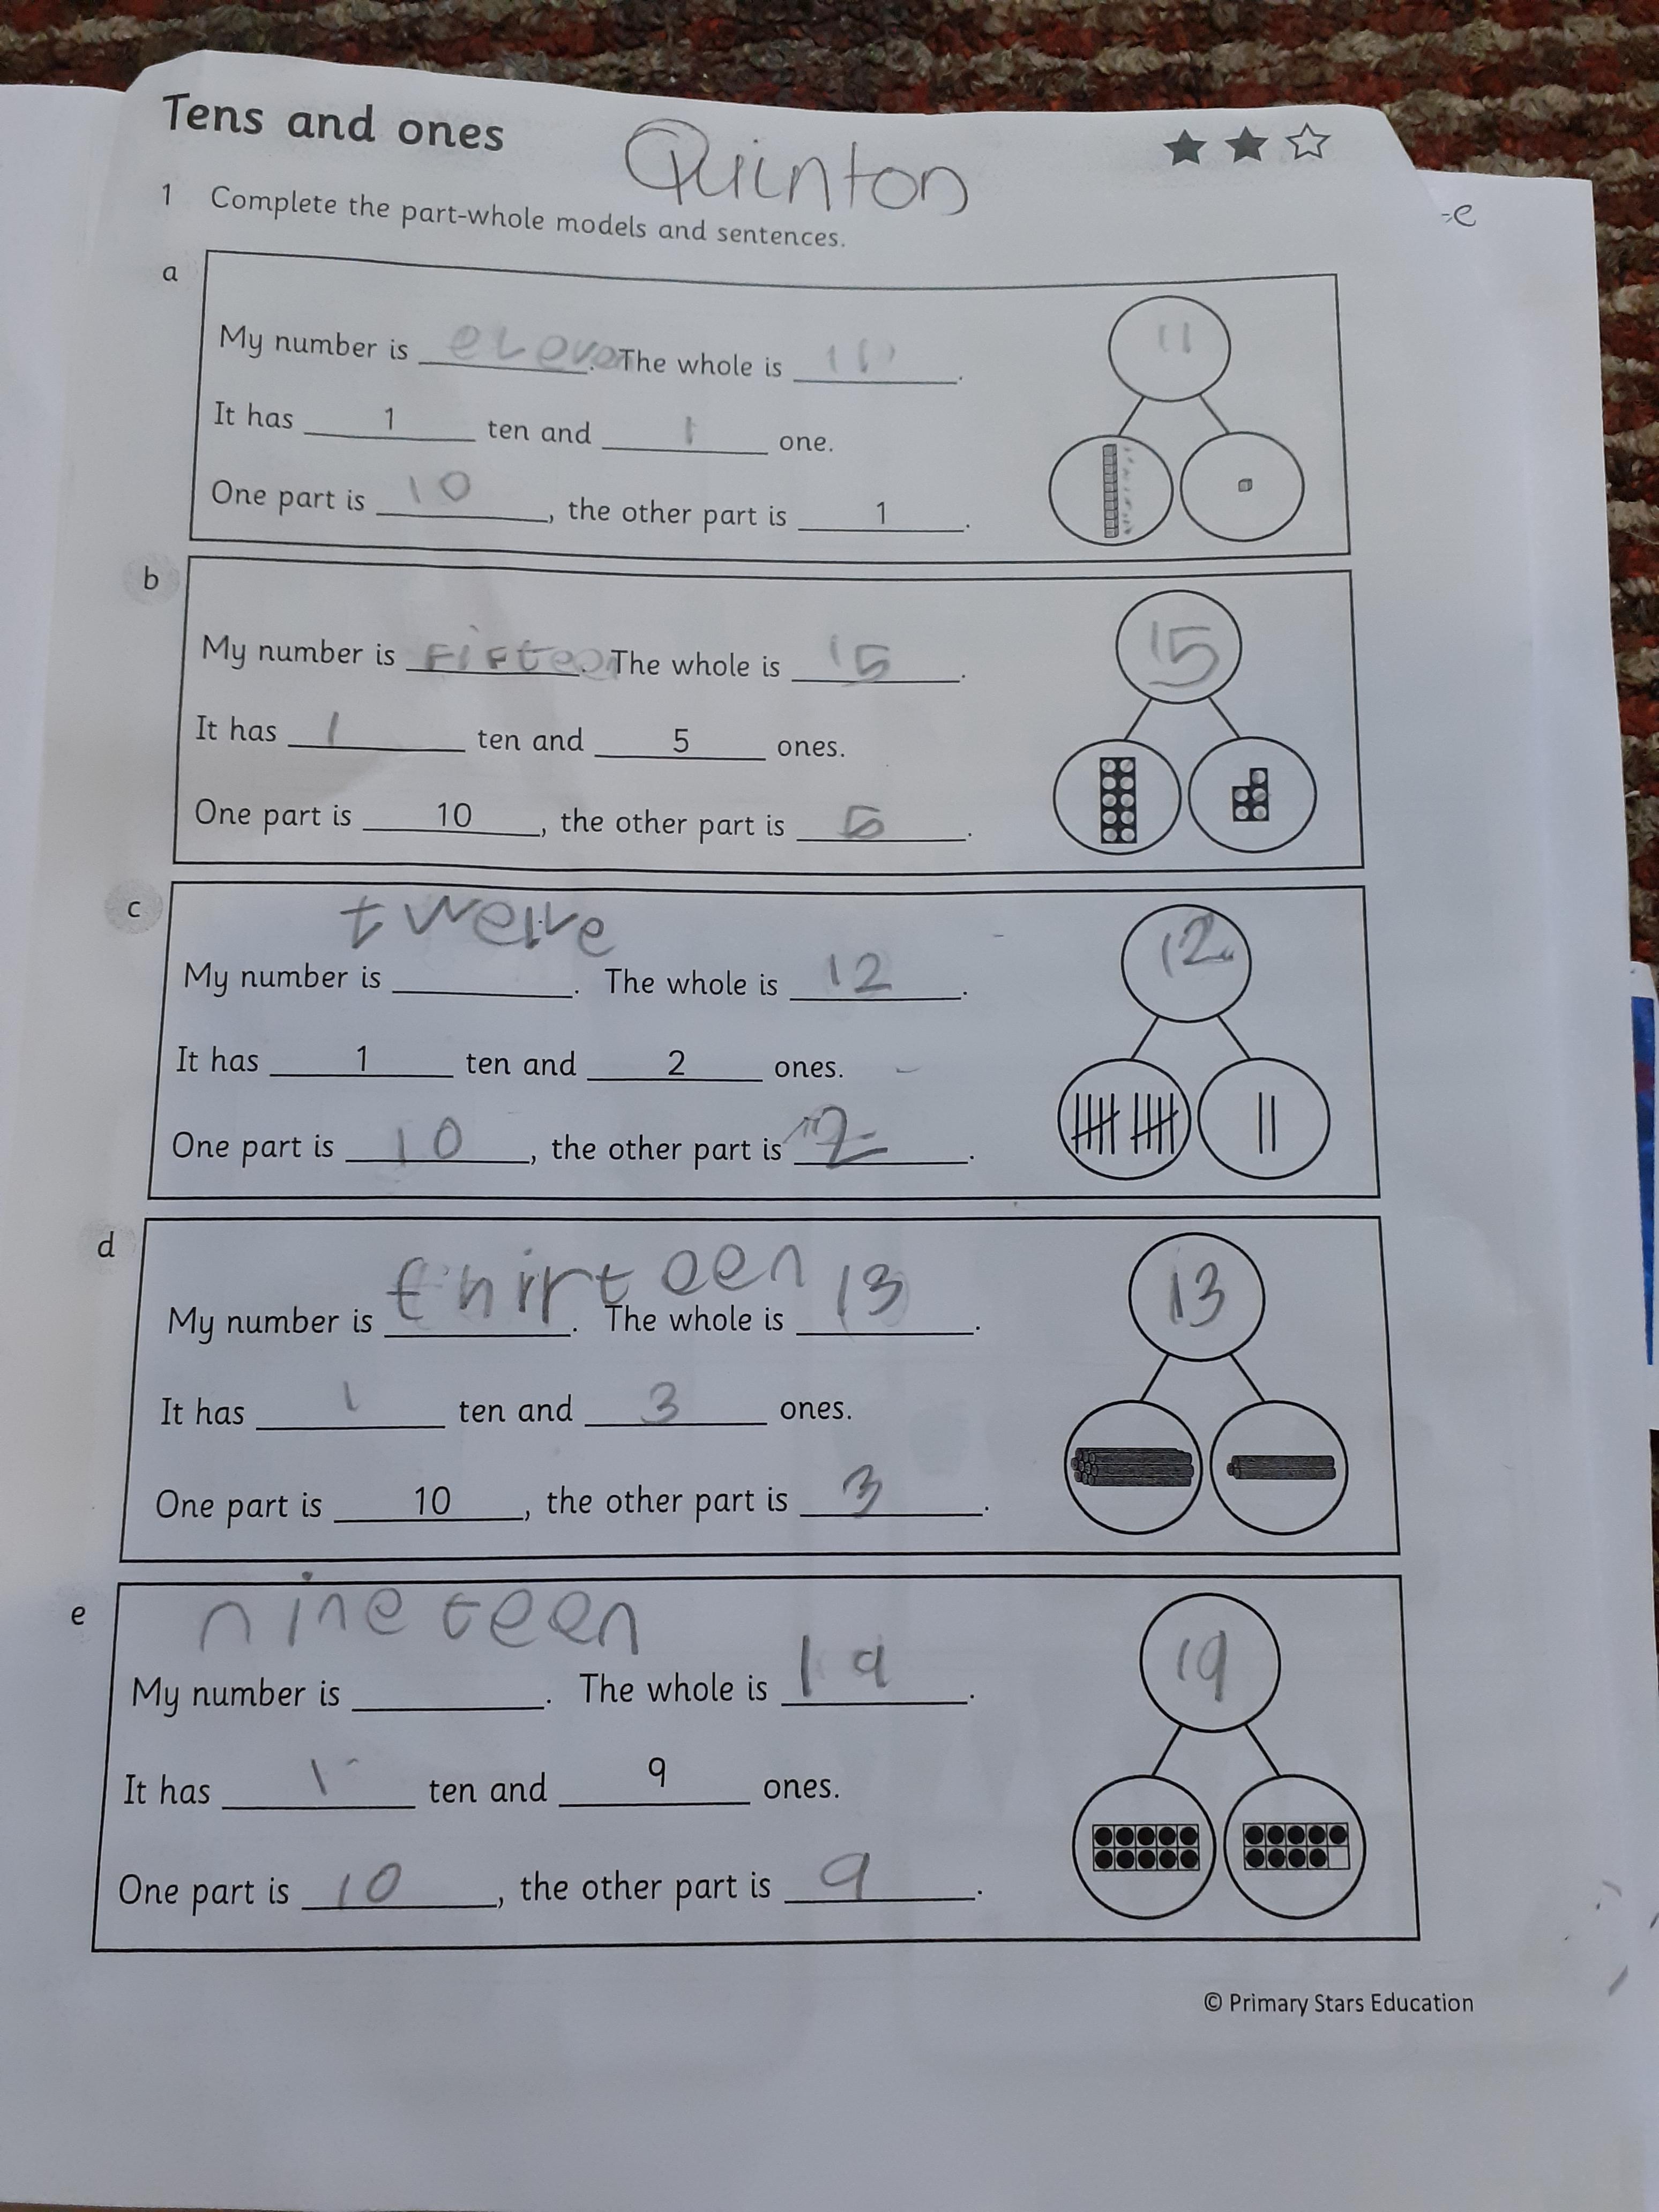 Tens and ones
Quinton
1 Complete the part-whole models and sentences.
a
My number is ______. The whole is 11.
11
It has 1 ten and 1 one.
One part is 10, the other part is 1.
b
My number is fifteen. The whole is 15.
15
It has 1 ten and 5 ones.
One part is 10, the other part is 5.
c
twelve
My number is ______. The whole is 12.
12
It has 1 ten and 2 ones.
One part is 10, the other part is 2.
d
My number is thirteen. The whole is 13.
13
It has 1 ten and 3 ones.
One part is 10, the other part is 3.
e
nineteen
My number is ______. The whole is 19.
19
It has 1 ten and 9 ones.
One part is 10, the other part is 9.
© Primary Stars Education